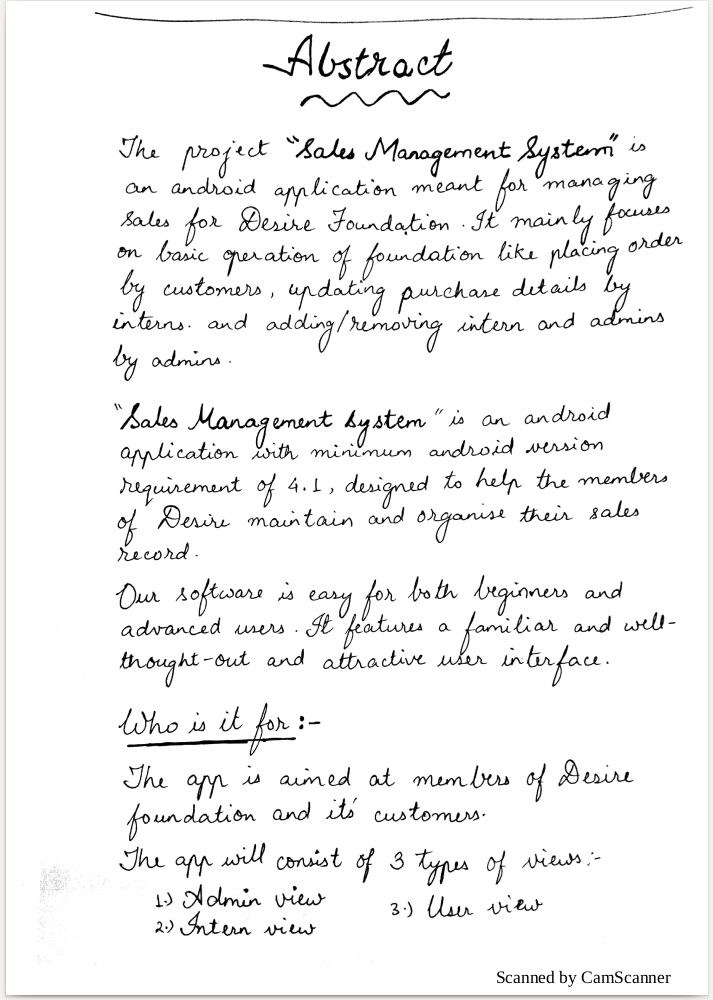 Abstract
The project "Sales Management System" is
an android application meant for managing
sales for Desire Foundation. It mainly focuses
on basic operation of foundation like placing order
by customers, updating purchase details by
interns. and adding/removing intern and admins
by admins.
"Sales Management System" is an android
application with minimum android version
requirement of 4.1, designed to help the members
of Desire maintain and organise their sales
record.
Our software is easy for both beginners and
advanced users. It features a familiar and well-
thought-out and attractive user interface.
Who is it for :-
The app is aimed at members of Desire
foundation and its' customers.
The app will consist of 3 types of views:-
1.) Admin view 3.) User view
2.) Intern view
Scanned by CamScanner